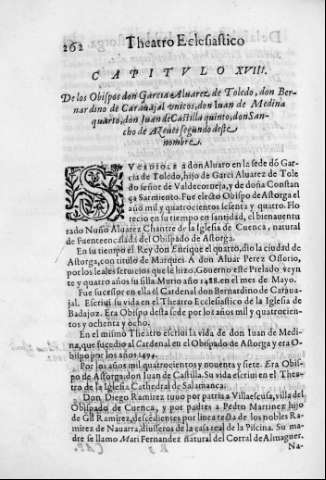 262 Theatro Eclesiastico
CAPITVLO XVIII.
De los Obispos don Garcia Aluarez de Toledo, don Ber-
nardino de Carauajal vnicos, don Iuan de Medina
quarto, don Iuan de Castilla quinto, don San-
cho de Azeues segundo deste
nombre.
SVCEDIOLE a don Aluaro en la sede dō Gar-
cia de Toledo, hijo de Garci Aluarez de Tole
do señor de Valdecorneja, y de doña Constan
ça Sarmiento. Fue electo Obispo de Astorga el
año mil y quatrocientos sesenta y quatro. Flo
recio en su tiempo en santidad, el bienauentu
rado Nuño Aluarez Chantre de la Iglesia de Cuenca, natural
de Fuenteencalada del Obispado de Astorga.
En su tiempo el Rey don Enrique el quarto, dio la ciudad de
Astorga, con titulo de Marques. A don Aluar Perez Ossorio,
por los leales seruicios que le hizo. Gouerno este Prelado veyn
te y quatro años su silla. Murio año 1488. en el mes de Mayo.
Fue sucessor en ella el Cardenal don Bernardino de Caraua-
jal. Escriui su vida en el Theatro Eclesiastico de la Iglesia de
Badajoz. Era Obispo desta sede por los años mil y quatrocien-
tos y ochenta y ocho.
En el mismo Theatro escriui la vida de don Iuan de Medi-
na, que sucedio al Cardenal en el Obispado de Astorga y era O-
bispo por los años 1494.
Por los años mil quatrocientos y nouenta y siete. Era Obis-
po de Astorga, don Iuan de Castilla. Su vida escriui en el Thea-
tro de la Iglesia Cathedral de Salamanca.
Don Diego Ramirez tuuo por patria a Villaescusa, villa del
Obispado de Cuenca, y por padres a Pedro Martinez hijo
de Gil Ramirez, descendientes por linea recta de los Ramirez
de Nauarra, diuiseros de la casa real de la Piscina. Su ma-
dre se llamo Mari Fernandez natural del Corral de Almaguer.
Na-